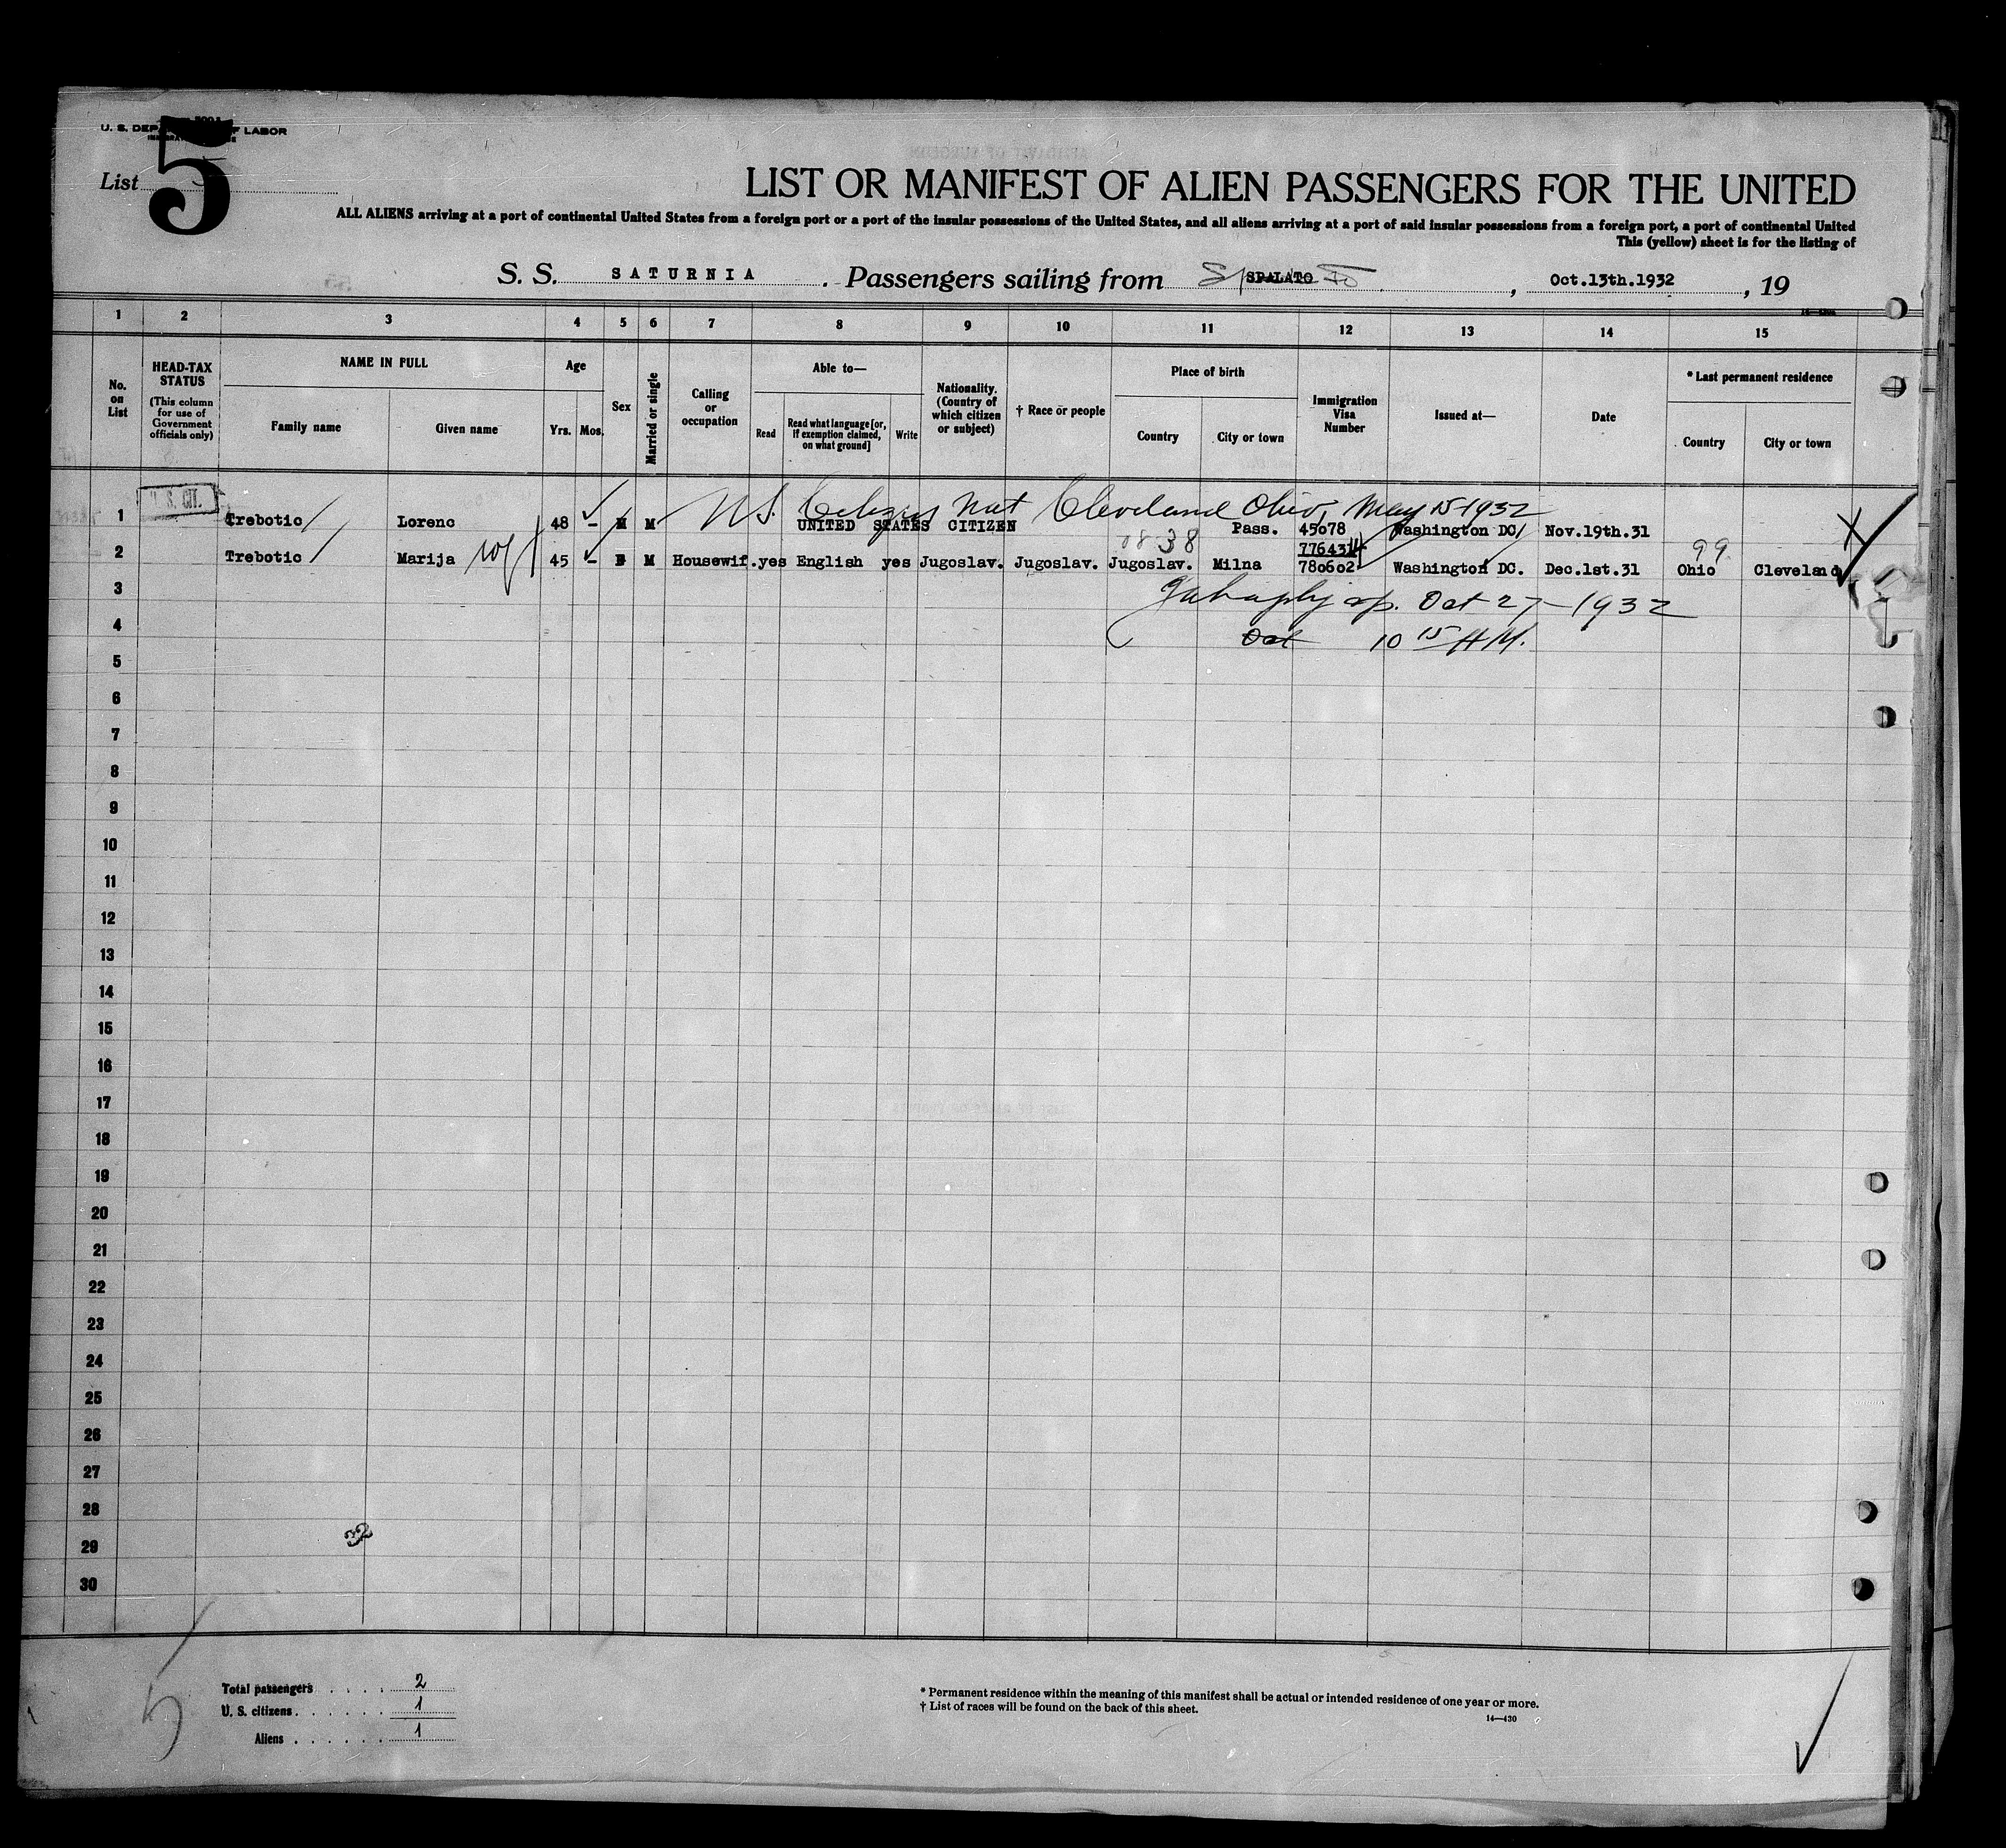 U. S. DEP OF LABOR
List 5
LIST OR MANIFEST OF ALIEN PASSENGERS FOR THE UNITED
ALL ALIENS arriving at a port of continental United States from a foreign port or a port of the insular possessions of the United States, and all aliens arriving at a port of said insular possessions from a foreign port, a port of continental United
This (yellow) sheet is for the listing of
S. S. SATURNIA . Passengers sailing from SPALATO , Oct.13th.1932 , 19
1 2 3 4 5 6 7 8 9 10 11 12 13 14 15
No. on List
HEAD-TAX STATUS (This column for use of Government officials only)
NAME IN FULL
Family name
Given name
Age
Yrs. Mos.
Sex
Married or single
Calling or occupation
Able to—
Read
Read what language [or, if exemption claimed, on what ground]
Write
Nationality. (Country of which citizen or subject)
† Race or people
Place of birth
Country
City or town
Immigration Visa Number
Issued at—
Date
* Last permanent residence
Country
City or town
U. S. Citizen Nat Cleveland Ohio, May 15-1932
1 U. S. CIT. Trebotic Lorenc 48 – M M UNITED STATES CITIZEN Pass. 45078 Washington DC/ Nov.19th.31
38 99
2 Trebotic Marija 45 – F M Housewif.yes English yes Jugoslav. Jugoslav. Jugoslav. Milna 780602 Washington DC. Dec.1st.31 Ohio Cleveland
3 Oct 27-1932
4 Oct 10 15 AM.
5
6
7
8
9
10
11
12
13
14
15
16
17
18
19
20
21
22
23
24
25
26
27
28
29
30
32
Total passengers . . . . 2
U. S. citizens . . . . . . 1
Aliens . . . . . . 1
* Permanent residence within the meaning of this manifest shall be actual or intended residence of one year or more.
† List of races will be found on the back of this sheet.
14—430